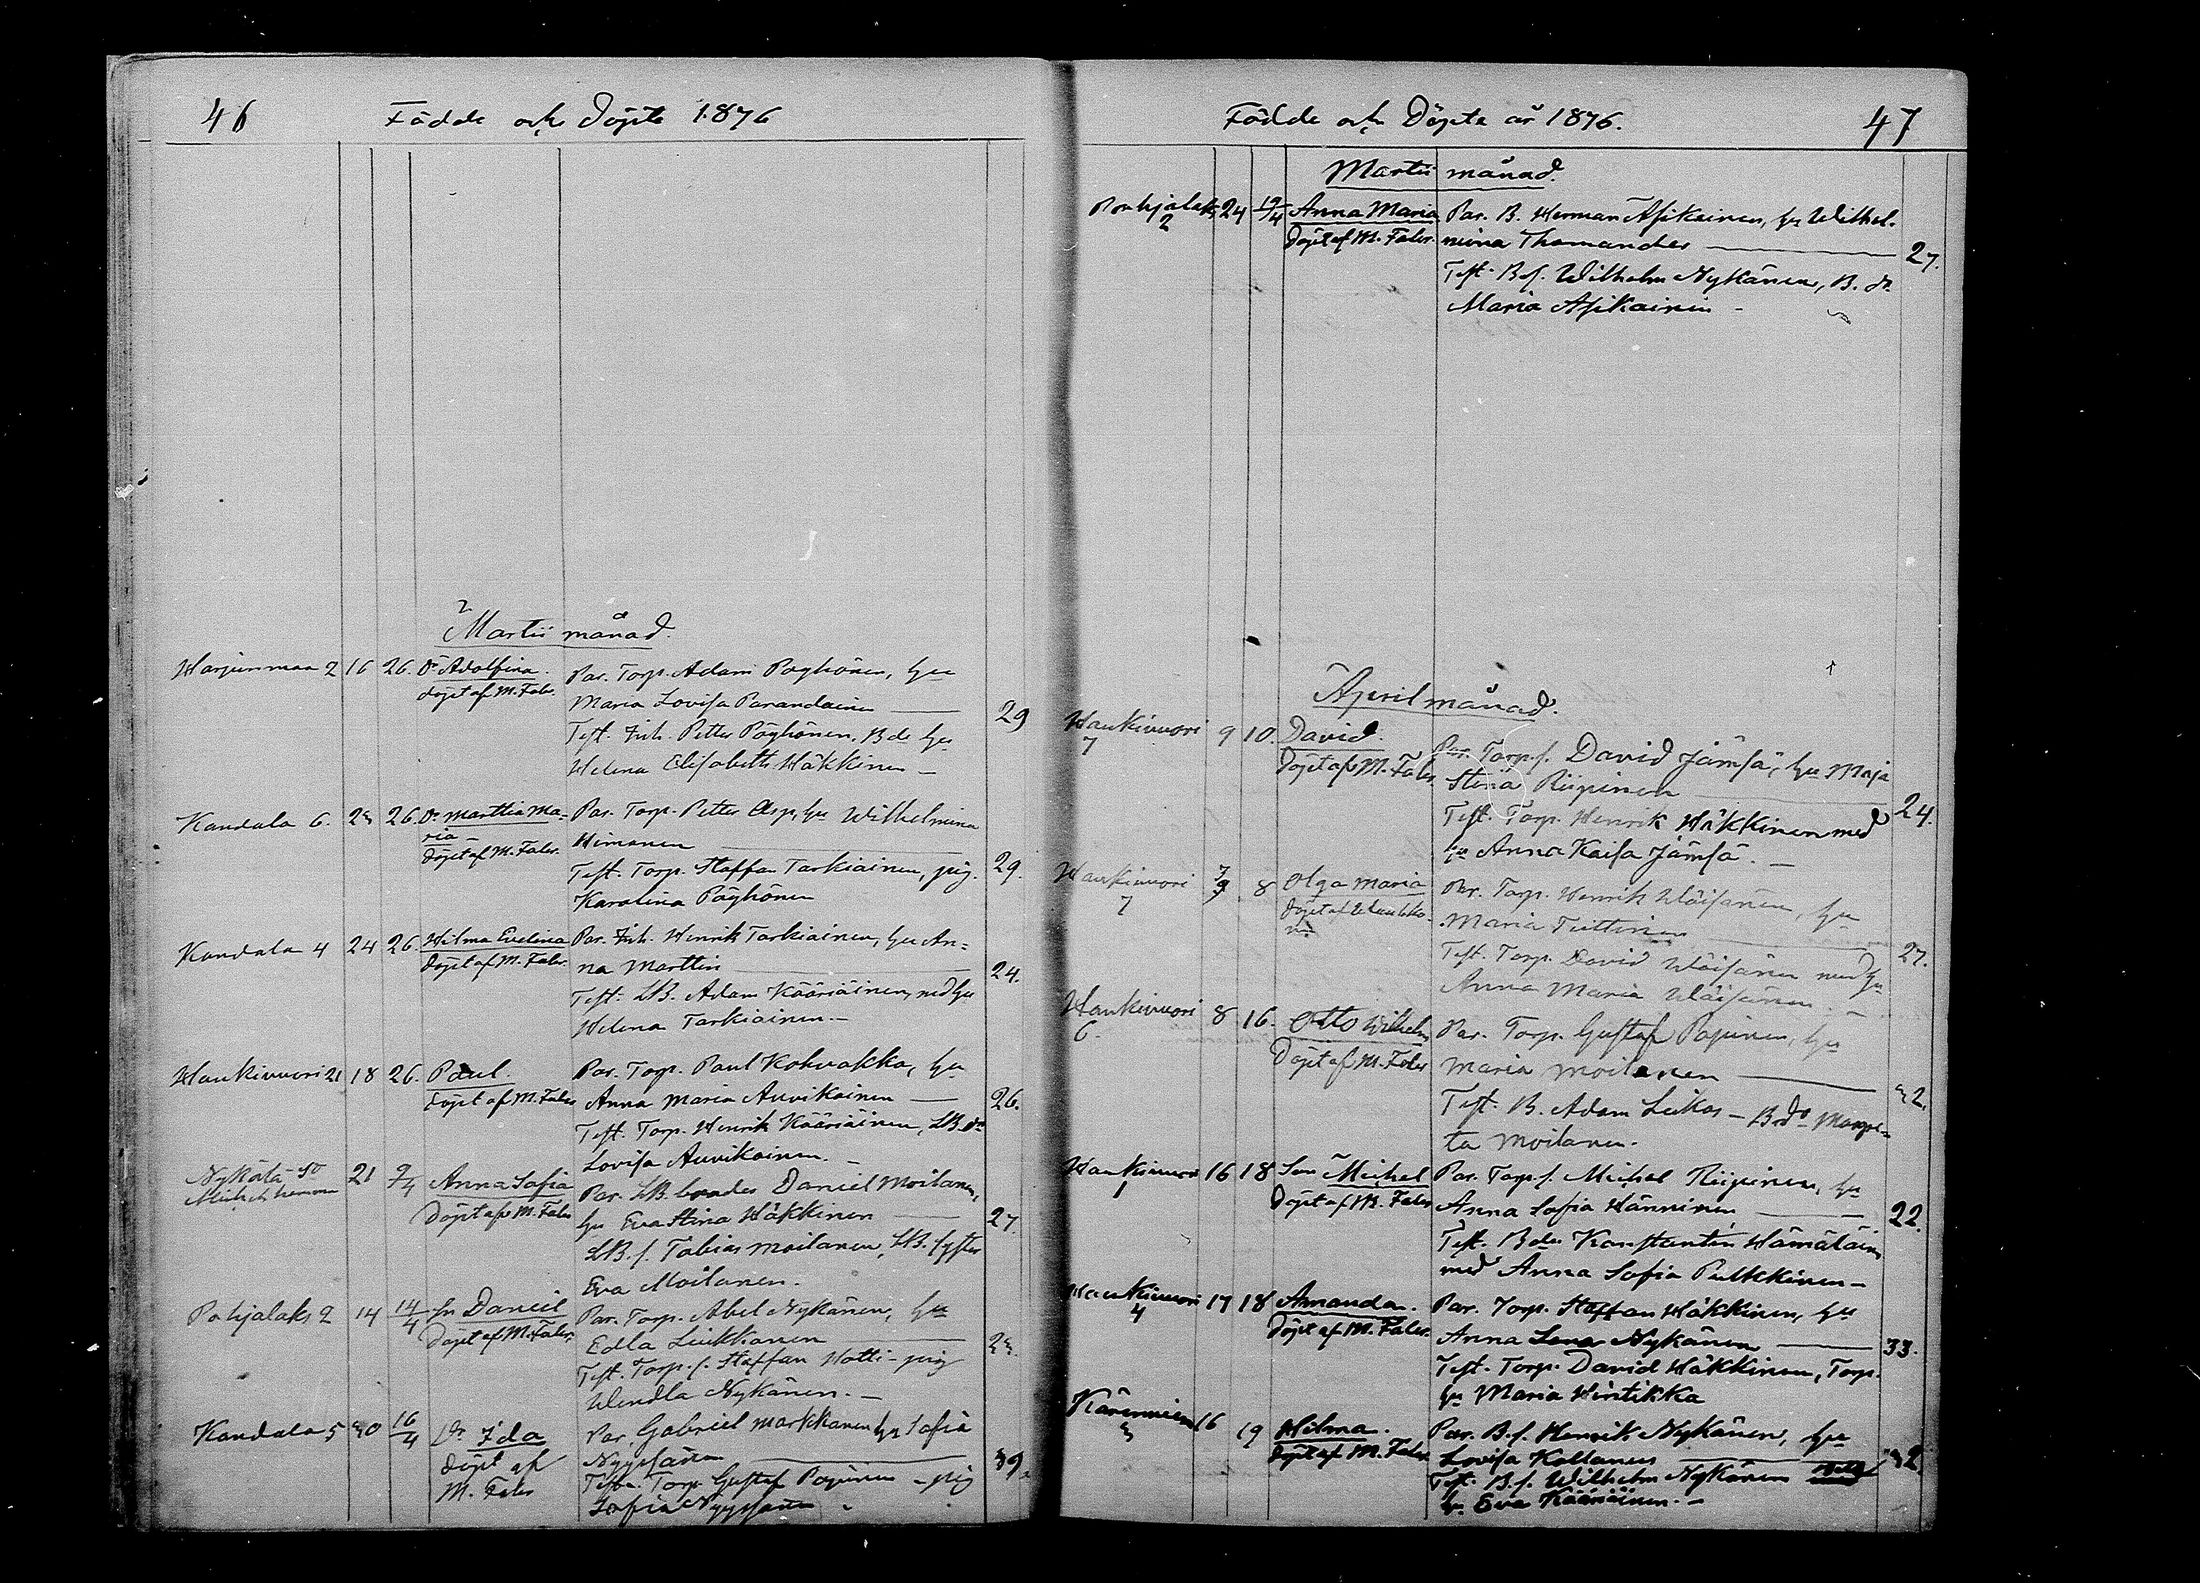 46 Födde och Döpte 1876
Martii månad.
Harjunmaa 2 16 26. Dr Adolfina. Par. Torp. Adam Pöyhönen, hu
döpt af M. Faler. Maria Lovisa Parandainen — 29
Test. Inh. Petter Pöyhönen, Bde hu
Helena Elisabeth Häkkinen —
Kandala 6. 23 26. Dr Marttia Ma- Par. Torp. Petter Asp, hu Wilhelmina
ria Himanen
döpt af M. Faler. Test. Torp. Staffan Tarkiainen, pig. 29.
Karolina Pöyhönen
Kandala 4 24 26. Hilma Evelina Par. Inh. Henrik Tarkiainen, hu An-
döpt af M. Faler. na Marttin — 24.
Test. LB. Adam Kääriäinen, med hu
Helena Tarkiainen. —
Haukivuori 21 18 26. Paul. Par. Torp. Paul Kokvakka, hu
Döpt af M. Faler Anna Maria Auvikainen — 26.
Test. Torp. Henrik Kääriäinen, LB. dr
Lovisa Auvikainen. —
21 9/4 Anna Sofia Par. LB. broder Daniel Moilanen,
Döpt af M. Faler hu Eva Stina Häkkinen — 27.
LB. s. Tobias Moilanen, LB. syster
Eva Moilanen.
Pohjalaks 2 14 14/4 sn Daniel Par. Torp. Abel Nykänen, hu
Döpt af M. Faler. Edla Liukkanen — 23.
Test. Torp. s. Staffan Hotti - pig
Wendla Nykänen. —
Kandala 5 30 16/4 Dr Ida Par Gabriel Markkanen hu Sofia
döpt af Nyyssönen — 39.
M. Faler Test. Torp. Gustaf Popinen - pig
Sofia Nyyssönen
Födde och Döpte år 1876. 47
Martii månad.
Pohjalaks 2 24 19/4 Anna Maria Par. B. Herman Asikainen, hu Wilhel-
Döpt af M. Faler. mina Thomander — 27.
Test. B.s. Wilhelm Nykänen, B. dr
Maria Asikainen —
April månad.
Haukivuori 7 9 10. David. Par. Torp s. David Jämsä, hu Maja
Döpt af M. Faler. Stina Riipinen — 24.
Test. Torp. Henrik Häkkinen med
hu Anna Kaisa Jämsä. —
Haukivuori 7 8 Olga Maria Par. Torp. Henrik Wäisänen, hu
Maria Tuttinen — 27.
Test. Torp. David Wäisänen med hu
Anna Maria Wäisänen
Haukivuori 6. 8 16. Otto Wilhelm Par. Torp. Gustaf Popinen, hu
Döpt af M. Faler Maria Moilanen — 32.
Test. B. Adam Leikas — B. dr Margre-
ta Moilanen.
Haukivuori 1 16 18 Son Michel Par. Torp s. Michel Riipinen, hu
Döpt af M. Faler Anna Sofia Hänninen — 22.
Test. Bde Konstantin Hämäläinen
med Anna Sofia Pulkkinen —
Haukivuori 4 17 18 Amanda. Par. Torp. Staffan Häkkinen, hu
Döpt af M. Faler. Anna Lena Nykänen — 33.
Test. Torp. David Häkkinen, Torp.
hu Maria Hintikka
Käremniemi 3 16 19 Hilma. Par. B.s. Henrik Nykänen, hu
Döpt af M. Faler. Lovisa Kollanen — 32.
Test. B. s. Wilhelm Nykänen
hu Eva Kääriäinen. —